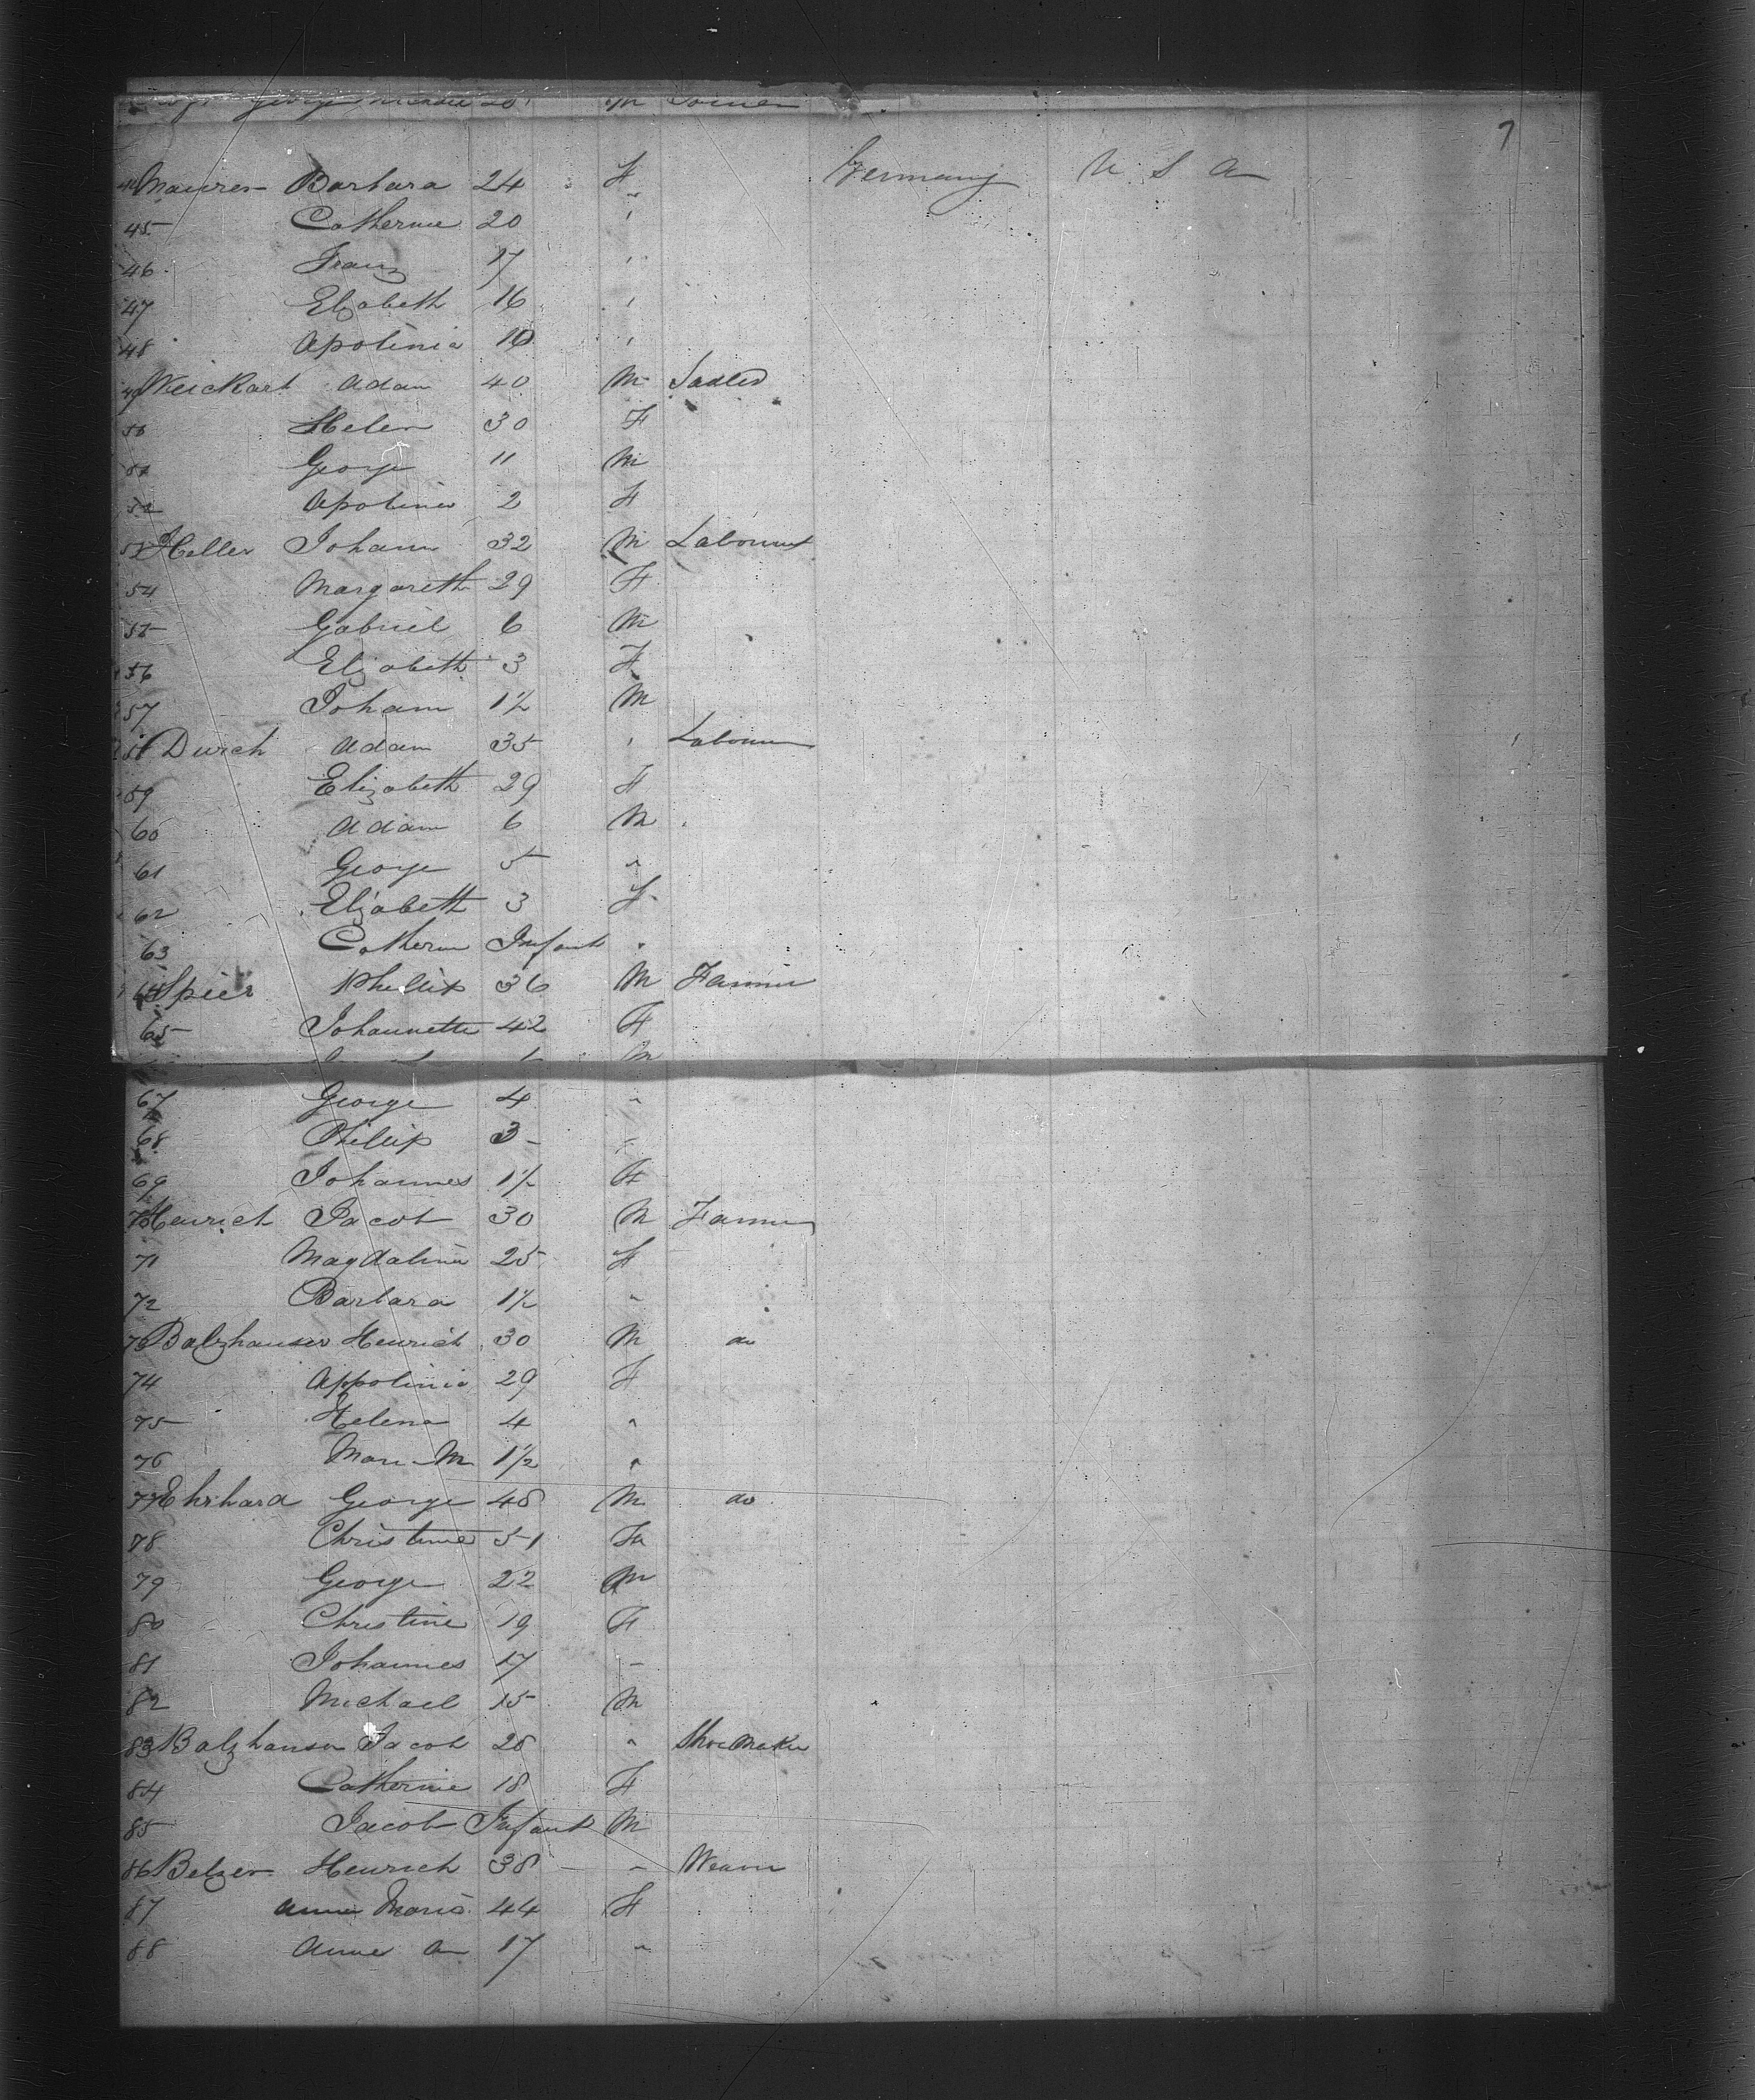 7
44 Maurer Barbara 24 F Germany U S A
45 Catherine 20 "
46 Franz 17 "
47 Elizabeth 16 "
48 Apolinia 10 "
49 Weickart Adam 40 M Sadler
50 Helen 30 F
51 George 11 M
52 Apolinia 2 F
53 Heller Johann 32 M Labourer
54 Margareth 29 F
55 Gabriel 6 M
56 Elizabeth 3 F
57 Johann 1½ M
58 Durch Adam 35 " Labourer
59 Elizabeth 29 F
60 Adam 6 M
61 George 5 "
62 Elizabeth 3 F
63 Catherin Infant "
64 Spier Phillip 36 M Farmer
65 Johannette 42 F
M
67 George 4 "
68 Phillip 3 "
69 Johannes 1½ F
70 Heinrich Jacob 30 M Farmer
71 Magdalina 25 F
72 Barbara 1½ "
73 Balzhauser Heinrich 30 M do
74 Appolinia 29 F
75 Helena 4 "
76 Mari M 1½ "
77 Ehrhard George 48 M do
78 Christine 51 F
79 George 22 M
80 Christine 19 F
81 Johannes 17 "
82 Michael 15 M
83 Balzhauser Jacob 28 " Shoemaker
84 Catherine 18 F
85 Jacob Infant M
86 Belzer Heinrich 38 " Weaver
87 Anna Maria 44 F
88 Anna 17 "